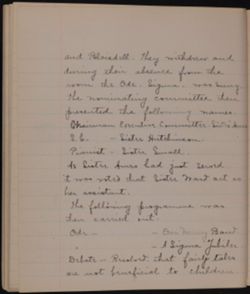 and Blaisdell. They withdrew and
during their absence from the
room the Ode, Sigma, was sung.
The nominating committee then
presented the following names.
Chairman Executive Committee Sister
S.C. - Sister Hutchinson
Pianist - Sister Small.
As Sister had just served
it was voted that Sister Ward act as
her assistant.
The following programme was
then carried out:
Ode - Band
" - A Sigma Jubilee.
Debate - Resolved that fairy tales
are not beneficial to children.